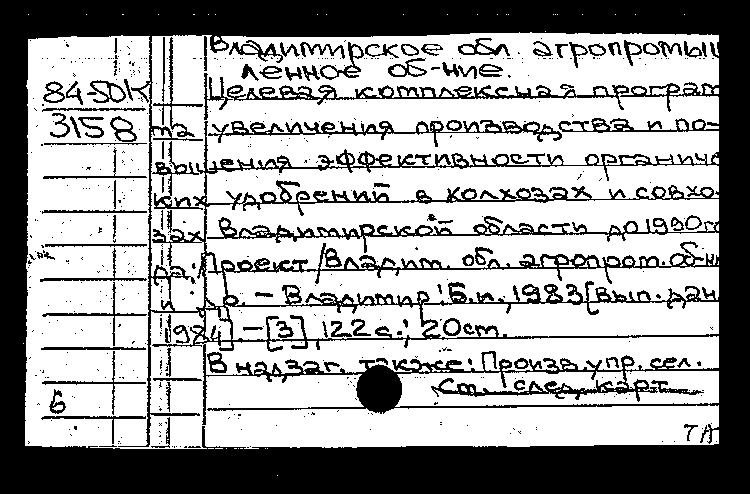 Владимирское обл. агропромыш
ленное об-ние.
84-50К Целевая комплексная програм
3158 ма увеличения производства и по-
вышения эффективности органичес
ких удобрений в колхозах и совхо-
зах Владимирской области до 1990г
да: Проект / Владим. обл. агропром. об-ни
– Владимир: Б.и., 1983 [вып. дан.
1984]. – [3], 122 с.; 20 см.
В надзаг. также: Произв. упр. сел.
6 См. след. карт
ТА